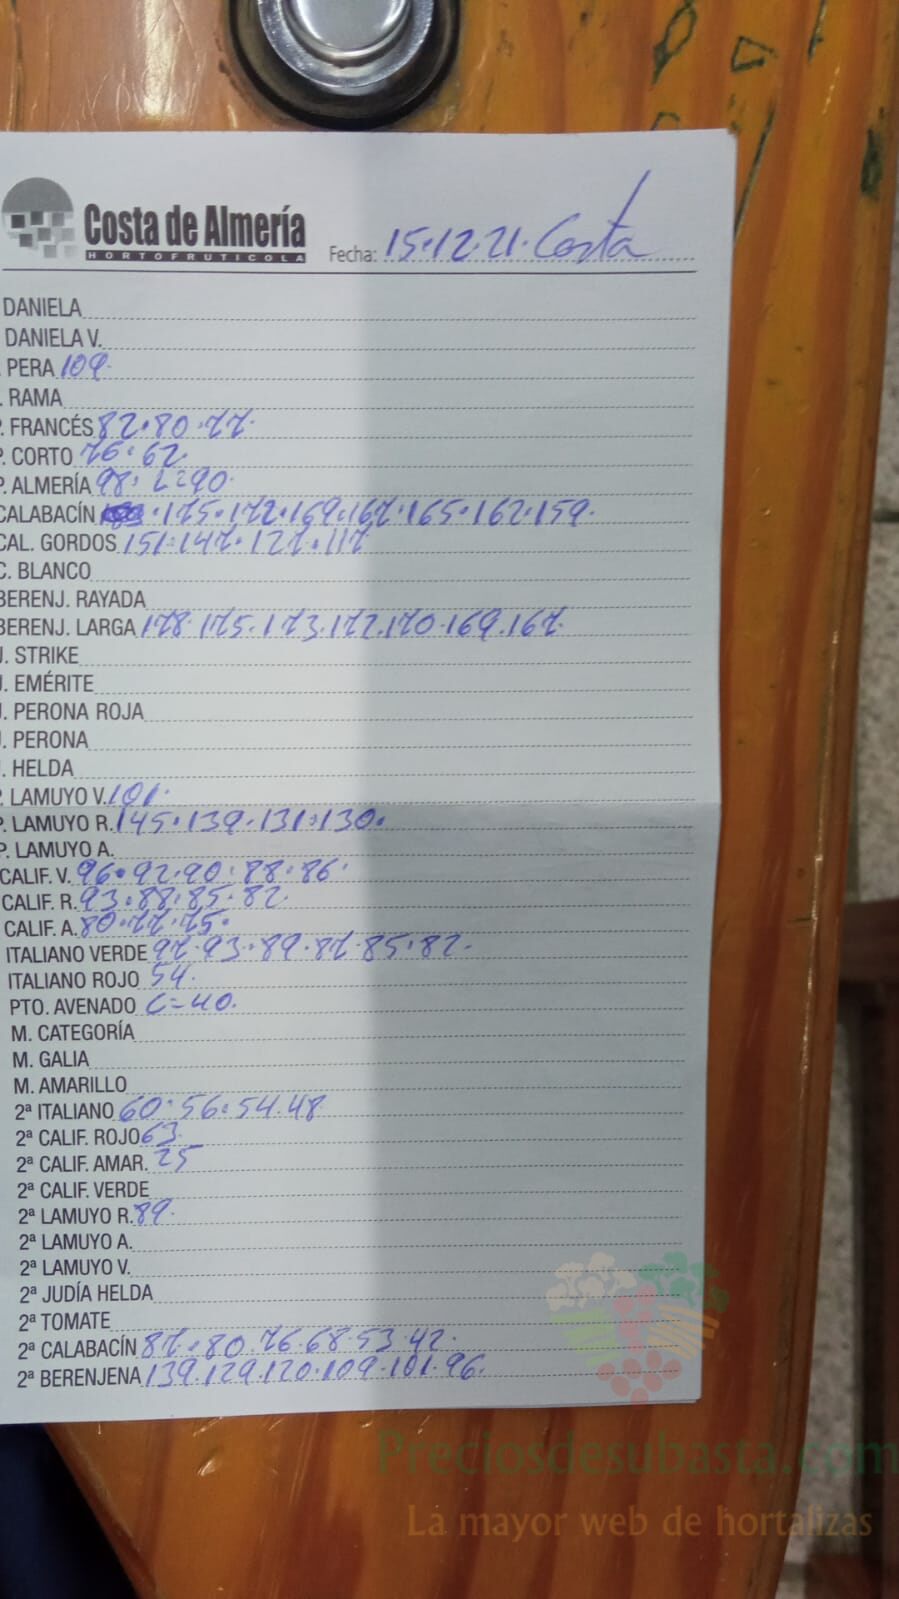 Costa de Almería
HORTOFRUTICOLA
Fecha: 15.12.21. Costa
DANIELA
DANIELA V.
. PERA 109.
. RAMA
P. FRANCÉS 82.80.77.
P. CORTO 76.62.
P. ALMERÍA 98. L=90.
CALABACÍN .175.172.169.167.165.162.159.
CAL. GORDOS 151.147.127.117
C. BLANCO
BERENJ. RAYADA
BERENJ. LARGA 178.175.173.172.170.169.167.
J. STRIKE
J. EMÉRITE
J. PERONA ROJA
J. PERONA
J. HELDA
P. LAMUYO V. 101.
P. LAMUYO R. 145.139.131.130.
P. LAMUYO A.
CALIF. V. 96.92.90.88.86.
CALIF. R. 93.88.85.82.
CALIF. A. 80.77.75.
ITALIANO VERDE 97.93.89.87.85.82.
ITALIANO ROJO 54.
PTO. AVENADO C=40.
M. CATEGORÍA
M. GALIA
M. AMARILLO
2ª ITALIANO 60.56.54.48
2ª CALIF. ROJO 63.
2ª CALIF. AMAR. 25
2ª CALIF. VERDE
2ª LAMUYO R. 89.
2ª LAMUYO A.
2ª LAMUYO V.
2ª JUDÍA HELDA
2ª TOMATE
2ª CALABACÍN 87.80.76.68.53.42.
2ª BERENJENA 139.129.120.109.101.96.
Preciosdesubasta.com
La mayor web de hortalizas